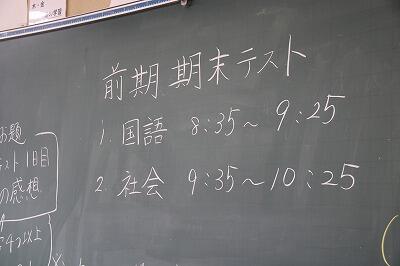 木・金
学習
前期 期末テスト
1. 国語 8:35～9:25
2. 社会 9:35～10:25
お題
テスト1日目
の感想
4つ以上